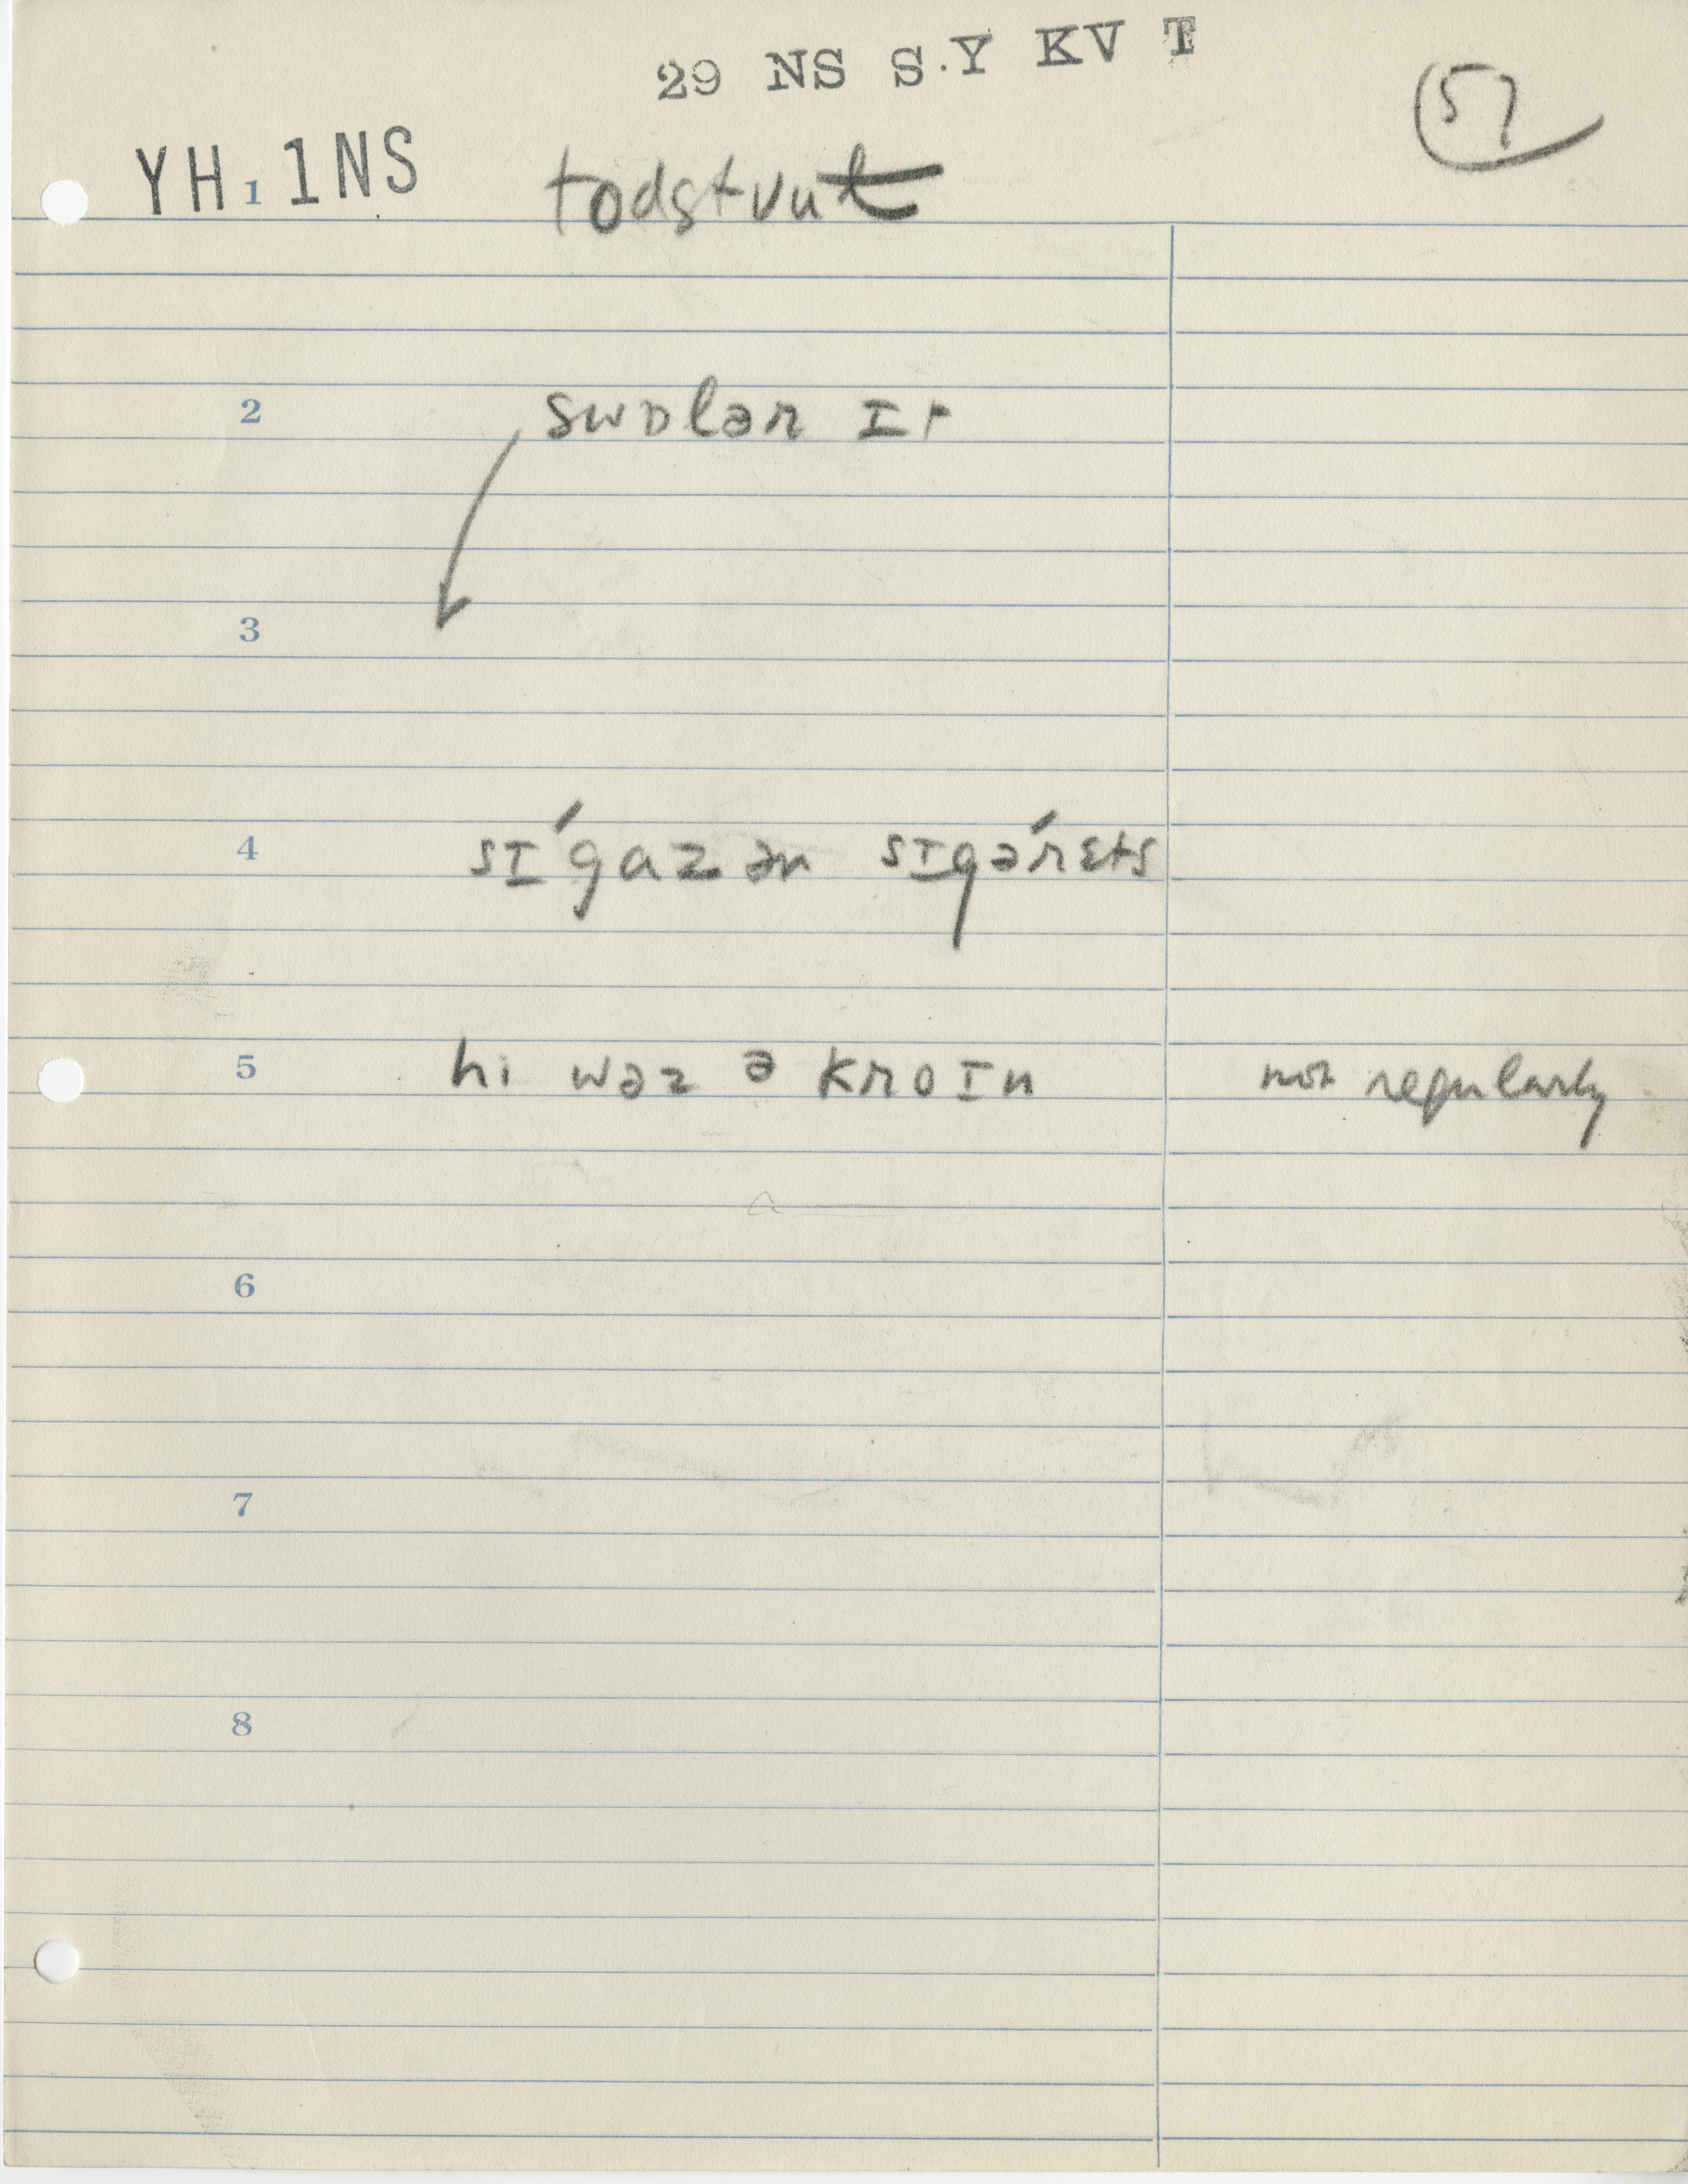 29 NS S.Y KV T
57
YH 1NS
1 todstvut
2 swɒlər ɪt
3
4 sɪ́gaz ən sɪgərɛ́ts
5 hi wəz ə kroɪn not regularly
6
7
8